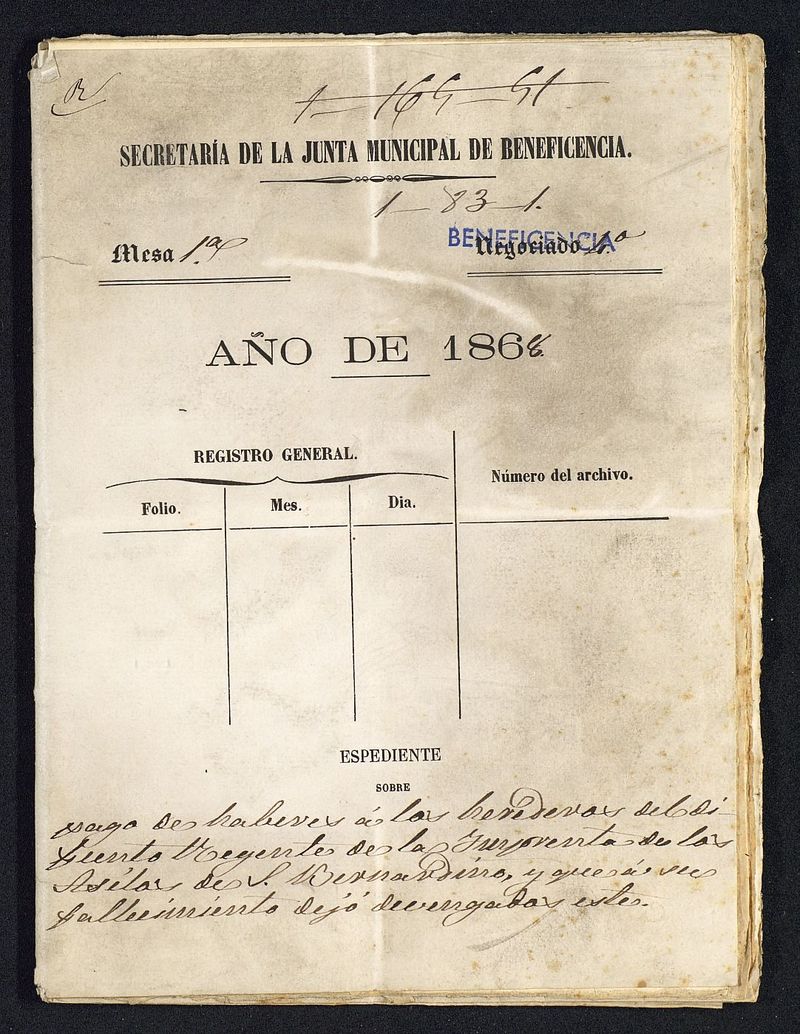 R
1-165-51
SECRETARÍA DE LA JUNTA MUNICIPAL DE BENEFICENCIA.
1-83-1.
BENEFICENCIA
Mesa 1.ª
Negociado 1.º
AÑO DE 1868.
REGISTRO GENERAL.
Número del archivo.
Folio. Mes. Dia.
ESPEDIENTE
SOBRE
pago de haberes á los herederos del di-
funto Regente de la Imprenta de los
Asilos de S. Bernardino, y que á su
fallecimiento dejó devengados este.